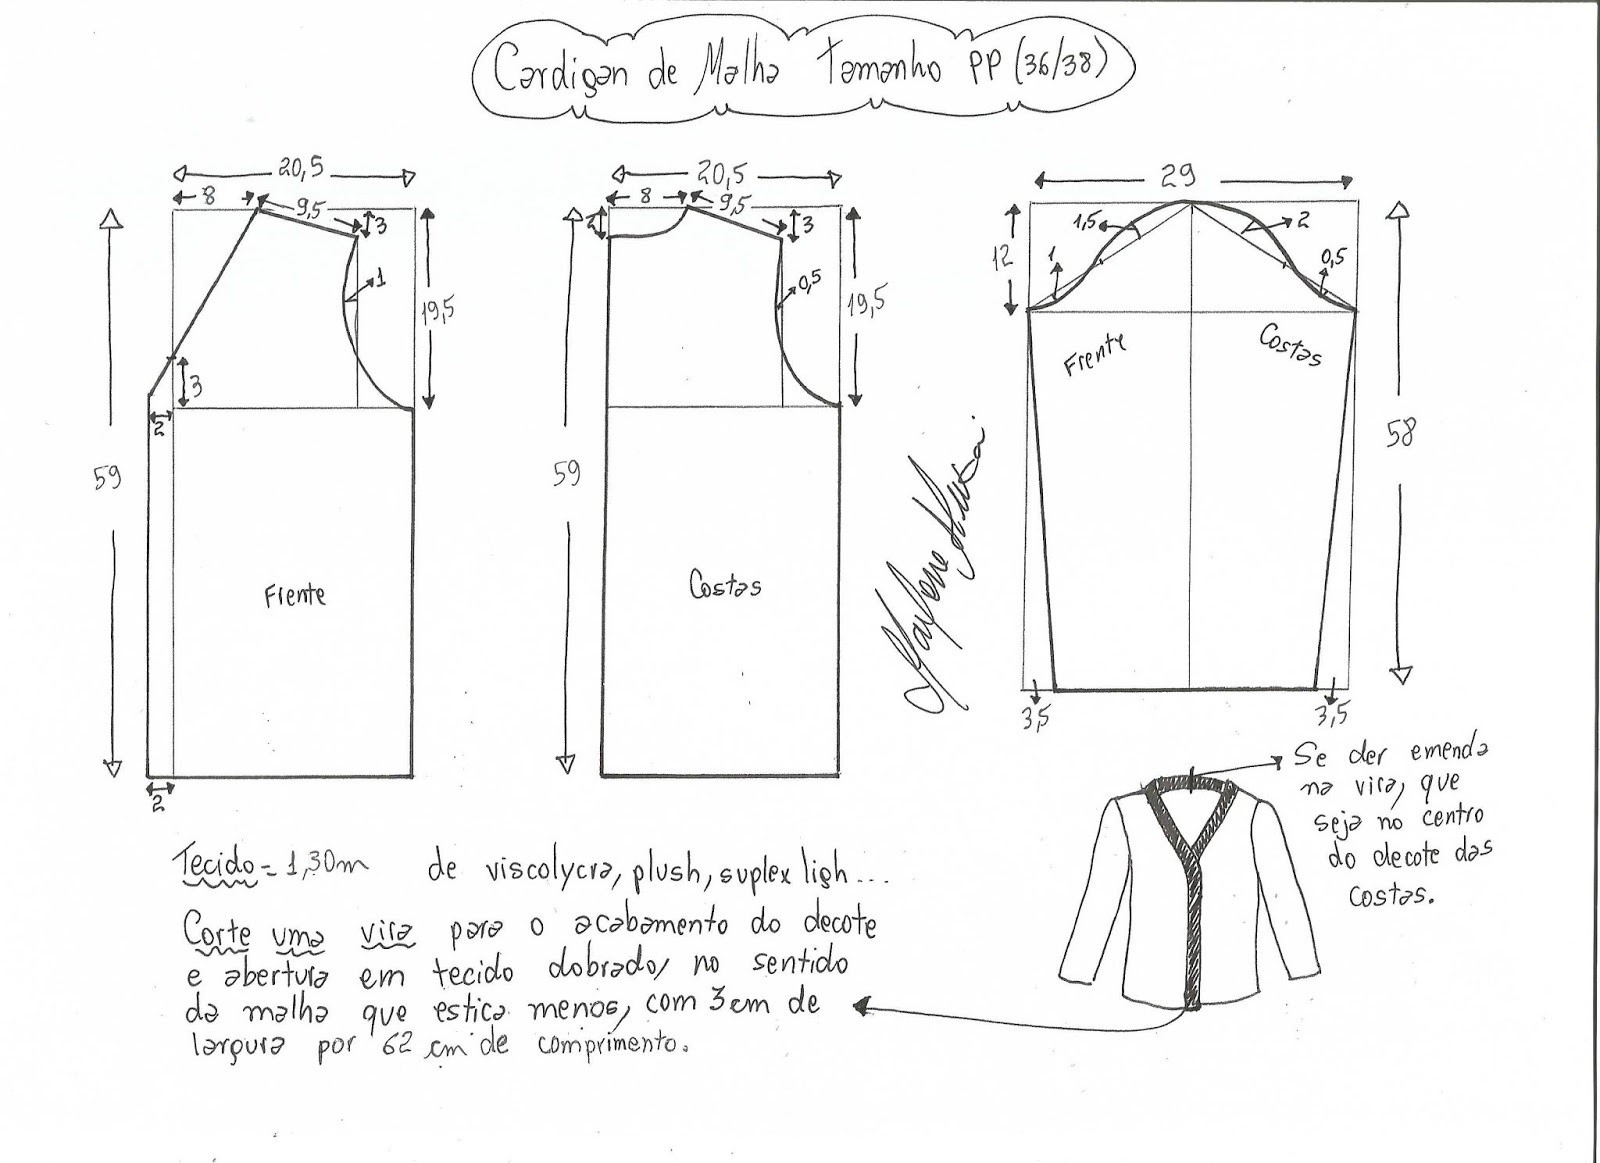 Cardigan de Malha Tamanho PP (36/38)
20,5
8
9,5
3
1
19,5
3
2
59
Frente
2
20,5
8
9,5
2
3
0,5
19,5
59
Costas
29
12
1,5
2
1
0,5
Frente
Costas
58
3,5
3,5
Se der emenda
na vira, que
seja no centro
do decote das
costas.
Tecido = 1,30m de viscolycra, plush, suplex ligh...
Corte uma vira para o acabamento do decote
e abertura em tecido dobrado, no sentido
da malha que estica menos, com 3 cm de
largura por 62 cm de comprimento.